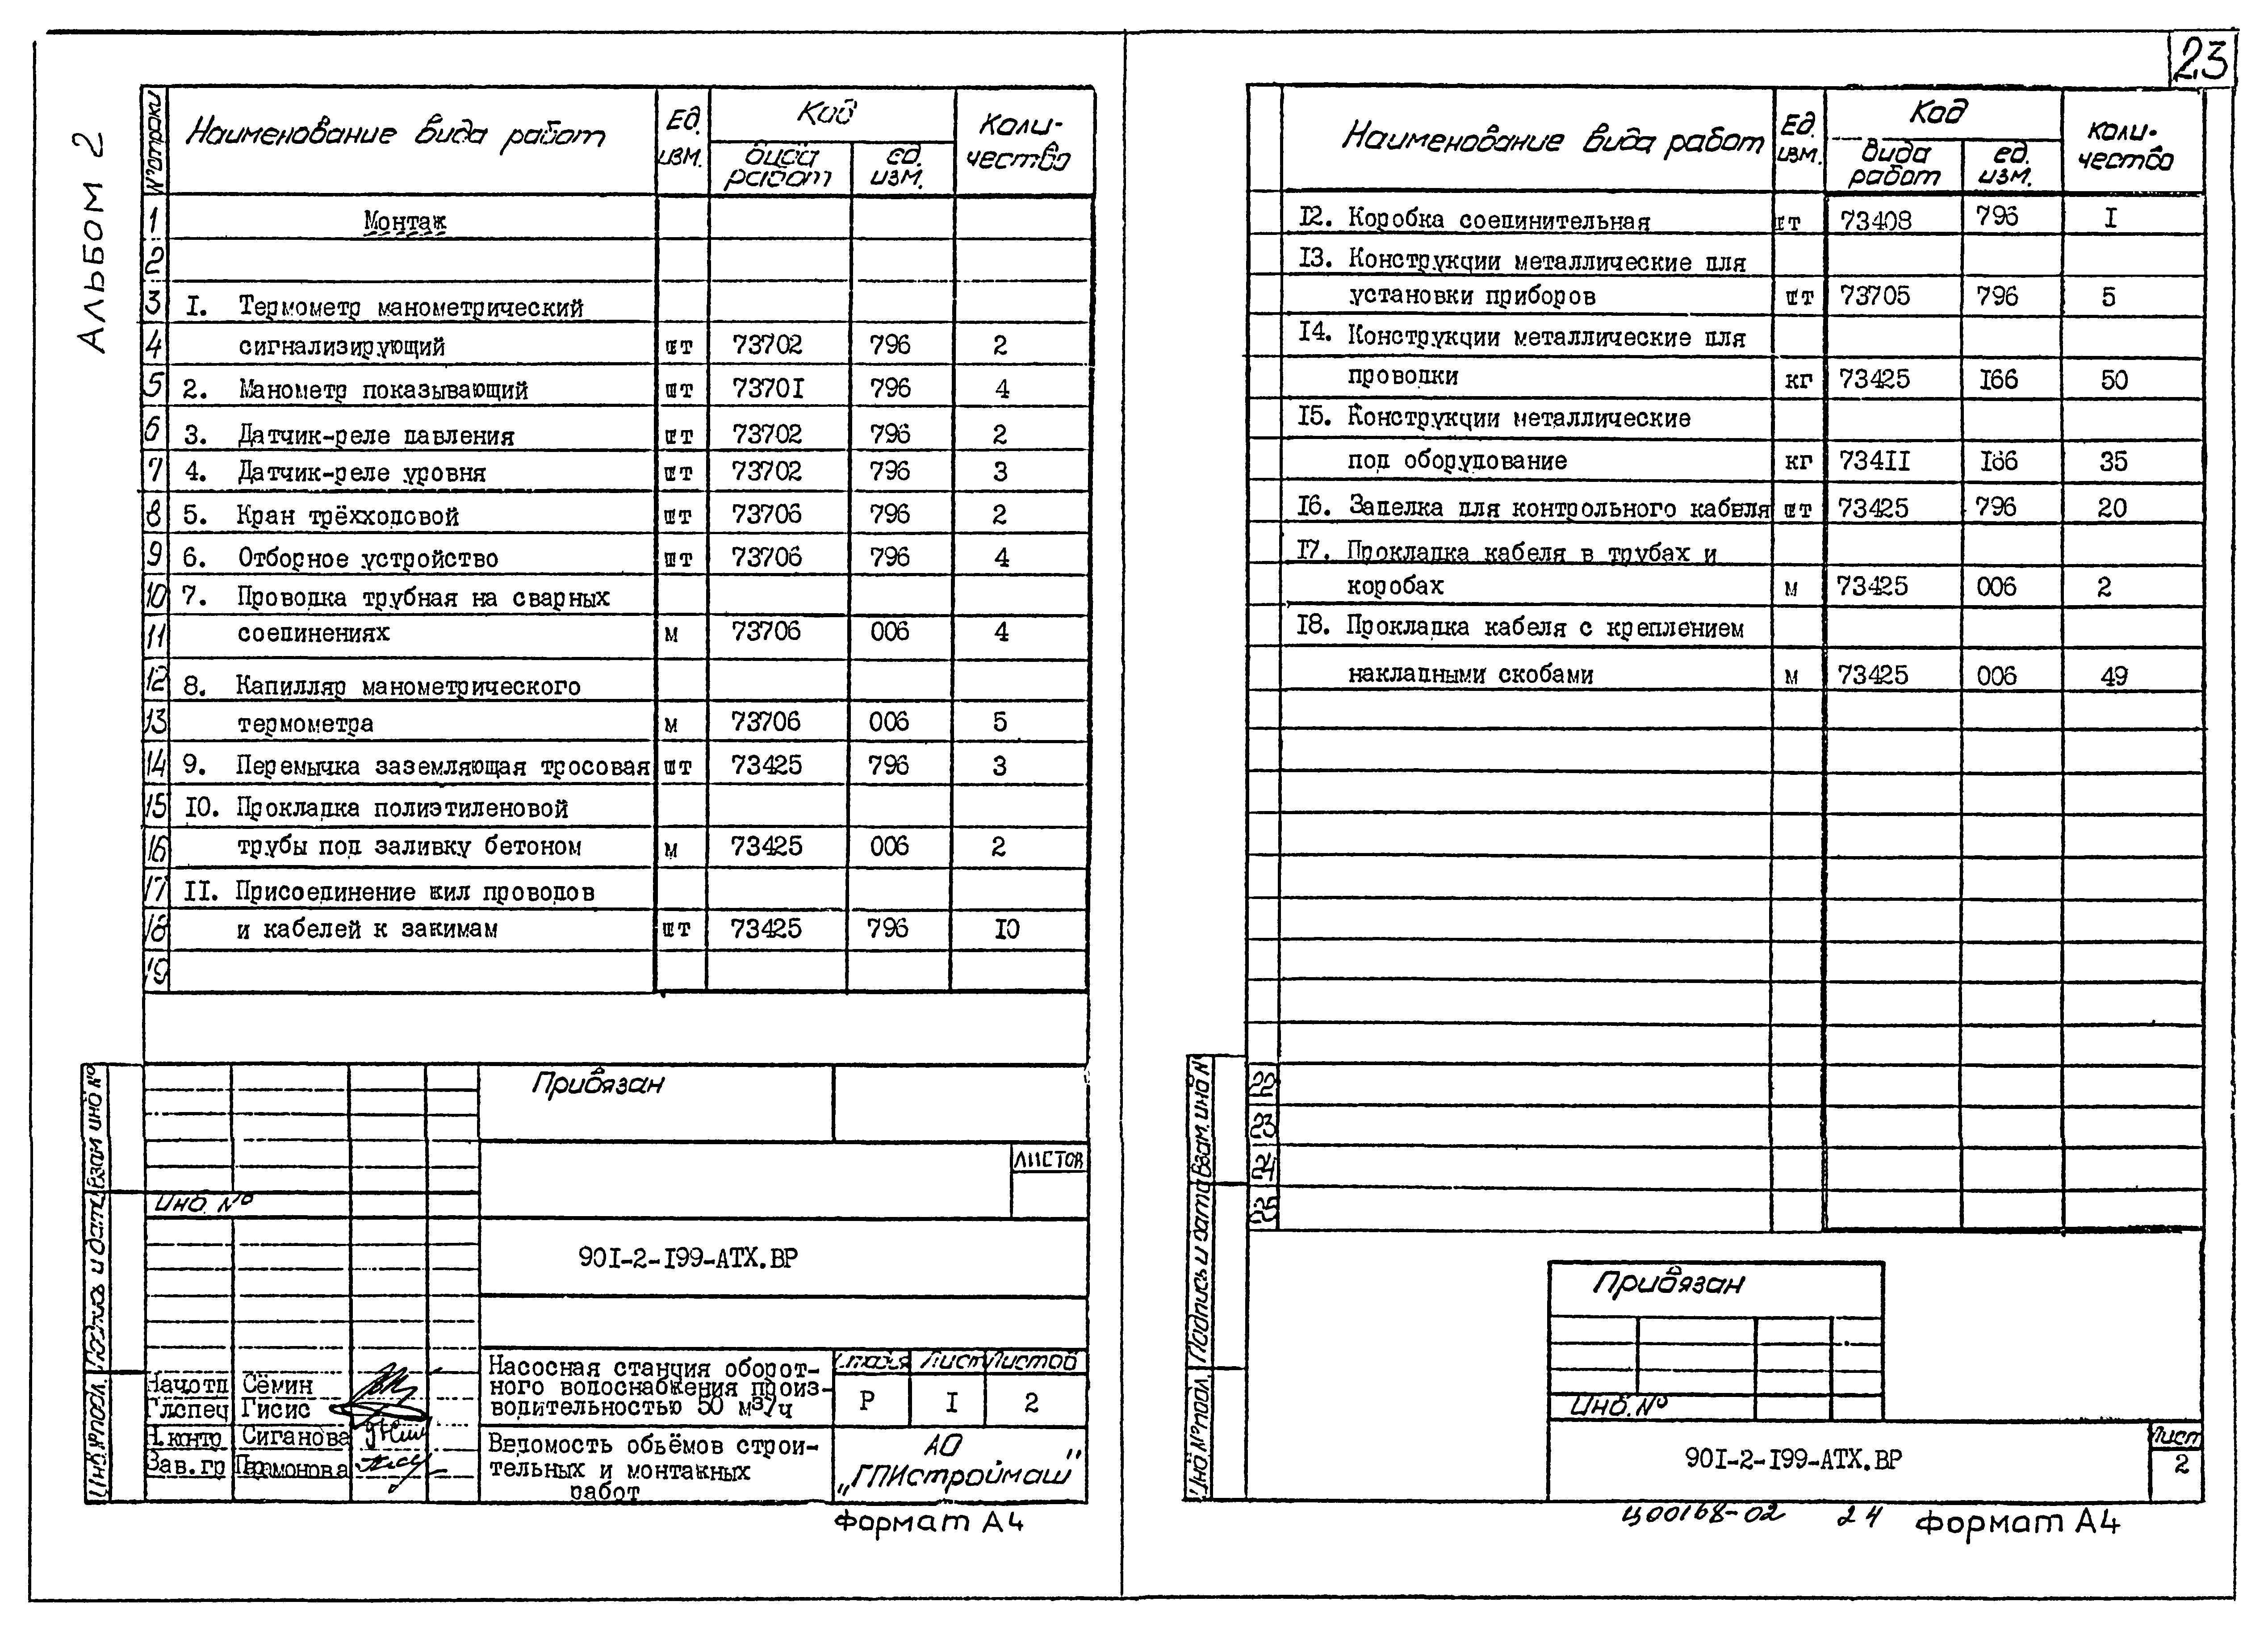 23
АЛЬБОМ 2
№ строки
Наименование вида работ
Ед. изм.
Код
вида работ
ед. изм.
Коли-
чество
1 Монтаж
2
3 1. Термометр манометрический
4 сигнализирующий шт 73702 796 2
5 2. Манометр показывающий шт 73701 796 4
6 3. Датчик-реле давления шт 73702 796 2
7 4. Датчик-реле уровня шт 73702 796 3
8 5. Кран трёхходовой шт 73706 796 2
9 6. Отборное устройство шт 73706 796 4
10 7. Проводка трубная на сварных
11 соединениях м 73706 006 4
12 8. Капилляр манометрического
13 термометра м 73706 006 5
14 9. Перемычка заземляющая тросовая шт 73425 796 3
15 10. Прокладка полиэтиленовой
16 трубы под заливку бетоном м 73425 006 2
17 11. Присоединение жил проводов
18 и кабелей к зажимам шт 73425 796 10
19
Привязан
ЛИСТОВ
Инв. №
901-2-199-АТХ.ВР
Нач.отд Сёмин
Гл.спец Гисис
Н.контр Сиганова
Зав.гр Парамонова
Насосная станция оборот-
ного водоснабжения произ-
водительностью 50 м³/ч
Стадия Лист Листов
Р 1 2
Ведомость объёмов строи-
тельных и монтажных
работ
АО
„ГПИстроймаш"
Формат А4
Инв.№ подл. Подпись и дата Взам инв №
Наименование вида работ
Ед. изм.
Код
вида работ
ед. изм.
Коли-
чество
12. Коробка соединительная шт 73408 796 1
13. Конструкции металлические для
установки приборов шт 73705 796 5
14. Конструкции металлические для
проводки кг 73425 166 50
15. Конструкции металлические
под оборудование кг 73411 166 35
16. Заделка для контрольного кабеля шт 73425 796 20
17. Прокладка кабеля в трубах и
коробах м 73425 006 2
18. Прокладка кабеля с креплением
накладными скобами м 73425 006 49
22
23
24
25
Инв № подл. Подпись и дата Взам. инв №
Привязан
Инв. №
901-2-199-АТХ.ВР
Лист
2
Ц00168-02 24 Формат А4